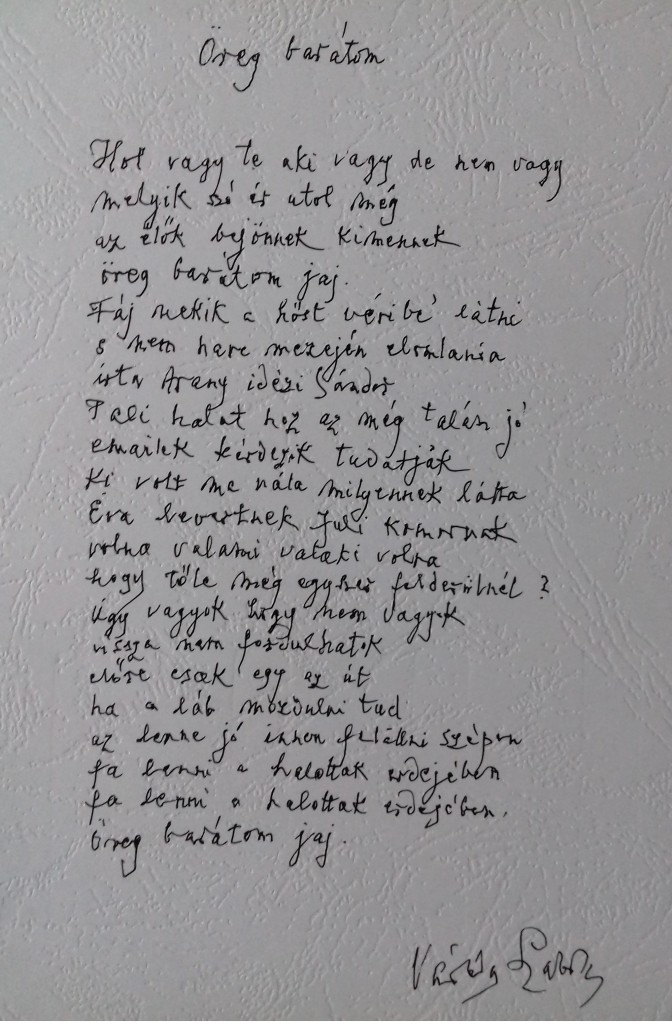 Öreg barátom
Hol vagy te aki vagy de nem vagy
melyik szó ér utol még
az élők bejönnek kimennek
öreg barátom jaj.
Fáj nekik a hőst véribe' látni
s nem harc mezején elomlania
írta Arany idézi Sándor
Pali halat hoz az még talán jó
emailek kérdezik tudatják
Ki volt ma nála milyennek látta
Éva levertnek Juli komornak
volna valami valaki volna
hogy tőle még egyszer felderülnél?
Úgy vagyok hogy nem vagyok
vissza nem fordulhatok
előre csak egy az út
ha a láb mozdulni tud
az lenne jó innen felállni szépen
fa lenni a halottak erdejében
fa lenni a halottak erdejében.
Öreg barátom jaj.
Várady Szabolcs